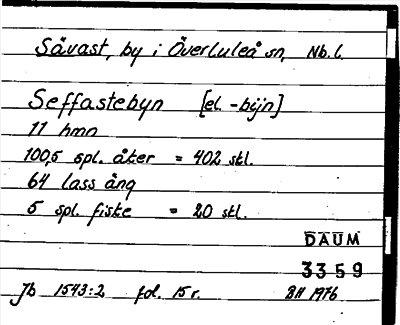 Sävast, by i Överluleå sn, Nb. l.
Seffastebyn [el. -bijn]
11 hmn
100,5 spl. åker = 402 skl.
64 lass äng
5 spl. fiske = 20 skl.
DAUM
3359
Jb 1543:2 fol. 15 r. BH 1976